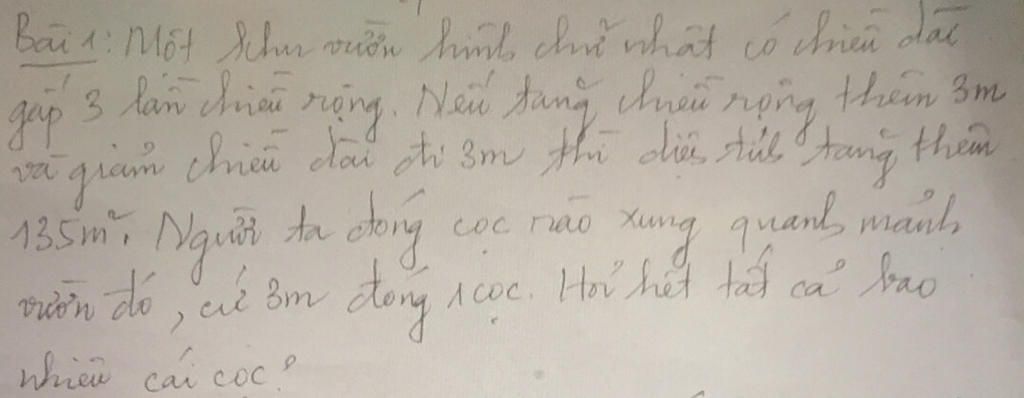 Bài 1: Một khu vườn hình chữ nhật có chiều dài
gấp 3 lần chiều rộng. Nếu tăng chiều rộng thêm 3m
và giảm chiều dài đi 3m thì diện tích tăng thêm
135m². Người ta đóng cọc rào xung quanh mảnh
vườn đó, cứ 3m đóng 1 cọc. Hỏi hết tất cả bao
nhiêu cái cọc?